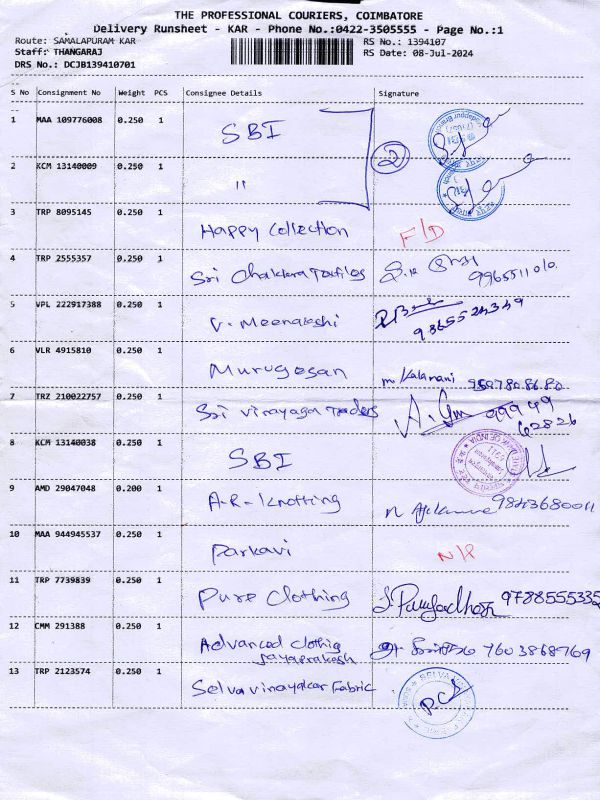 THE PROFESSIONAL COURIERS, COIMBATORE
Delivery Runsheet - KAR - Phone No.:0422-3505555 - Page No.:1
Route: SAMALAPURAM KAR RS No.: 1394107
Staff: THANGARAJ RS Date: 08-Jul-2024
DRS No.: DCJB139410701
S No Consignment No Weight PCS Consignee Details Signature
1 MAA 109776008 0.250 1 SBI
2
2 KCM 13140009 0.250 1 "
3 TRP 8095145 0.250 1 Happy Collection F/D
4 TRP 2555357 0.250 1 Sri
5 VPL 222917388 0.250 1 V. Meenakshi
6 VLR 4915810 0.250 1 Murugesan
7 TRZ 210022757 0.250 1 Sri Vinayaga Traders 99949
62826
8 KCM 13140038 0.250 1 SBI
9 AMD 29047048 0.200 1 A-R- Knotting
10 MAA 944945537 0.250 1 Parkavi
11 TRP 7739839 0.250 1 Pure Clothing 9788555335
12 CMM 291388 0.250 1 Advanced 7603868769
Jayaprakash
13 TRP 2123574 0.250 1 Selvavinayakar Fabric